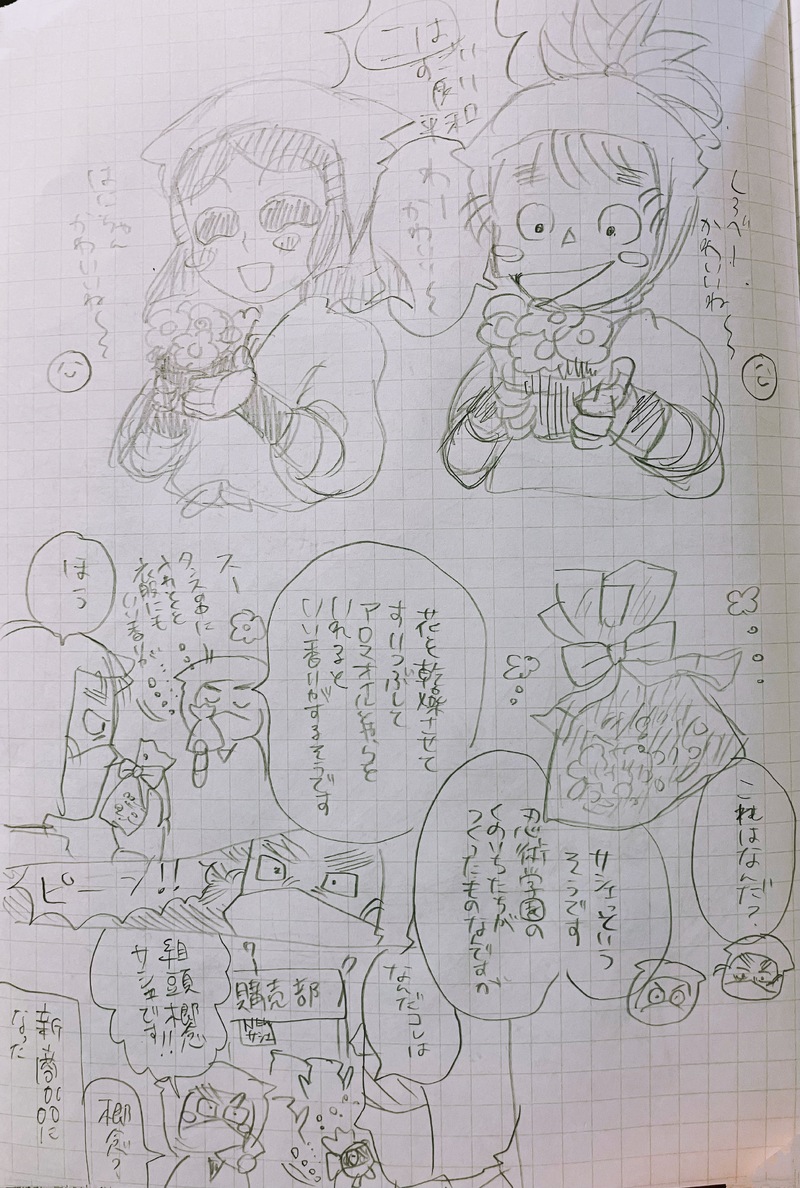 しろべー
かわいいね〜〜
わー
かわいい〜
はにゃん
かわいいね〜〜
これはなんだ?
サシェっていう
そうです
忍術学園の
くのいちたちが
つくったものなんですが
花を乾燥させて
すりつぶして
アロマオイルを
いれると
いい香りがするそうです
スー
タンスの中に
いれとくと
衣服にも
いい香りが
ほう
ピーン!!
なんだコレは
購売部
NEW
サシェ
組頭概念
サシェです!!
概念?
新商品に
なった